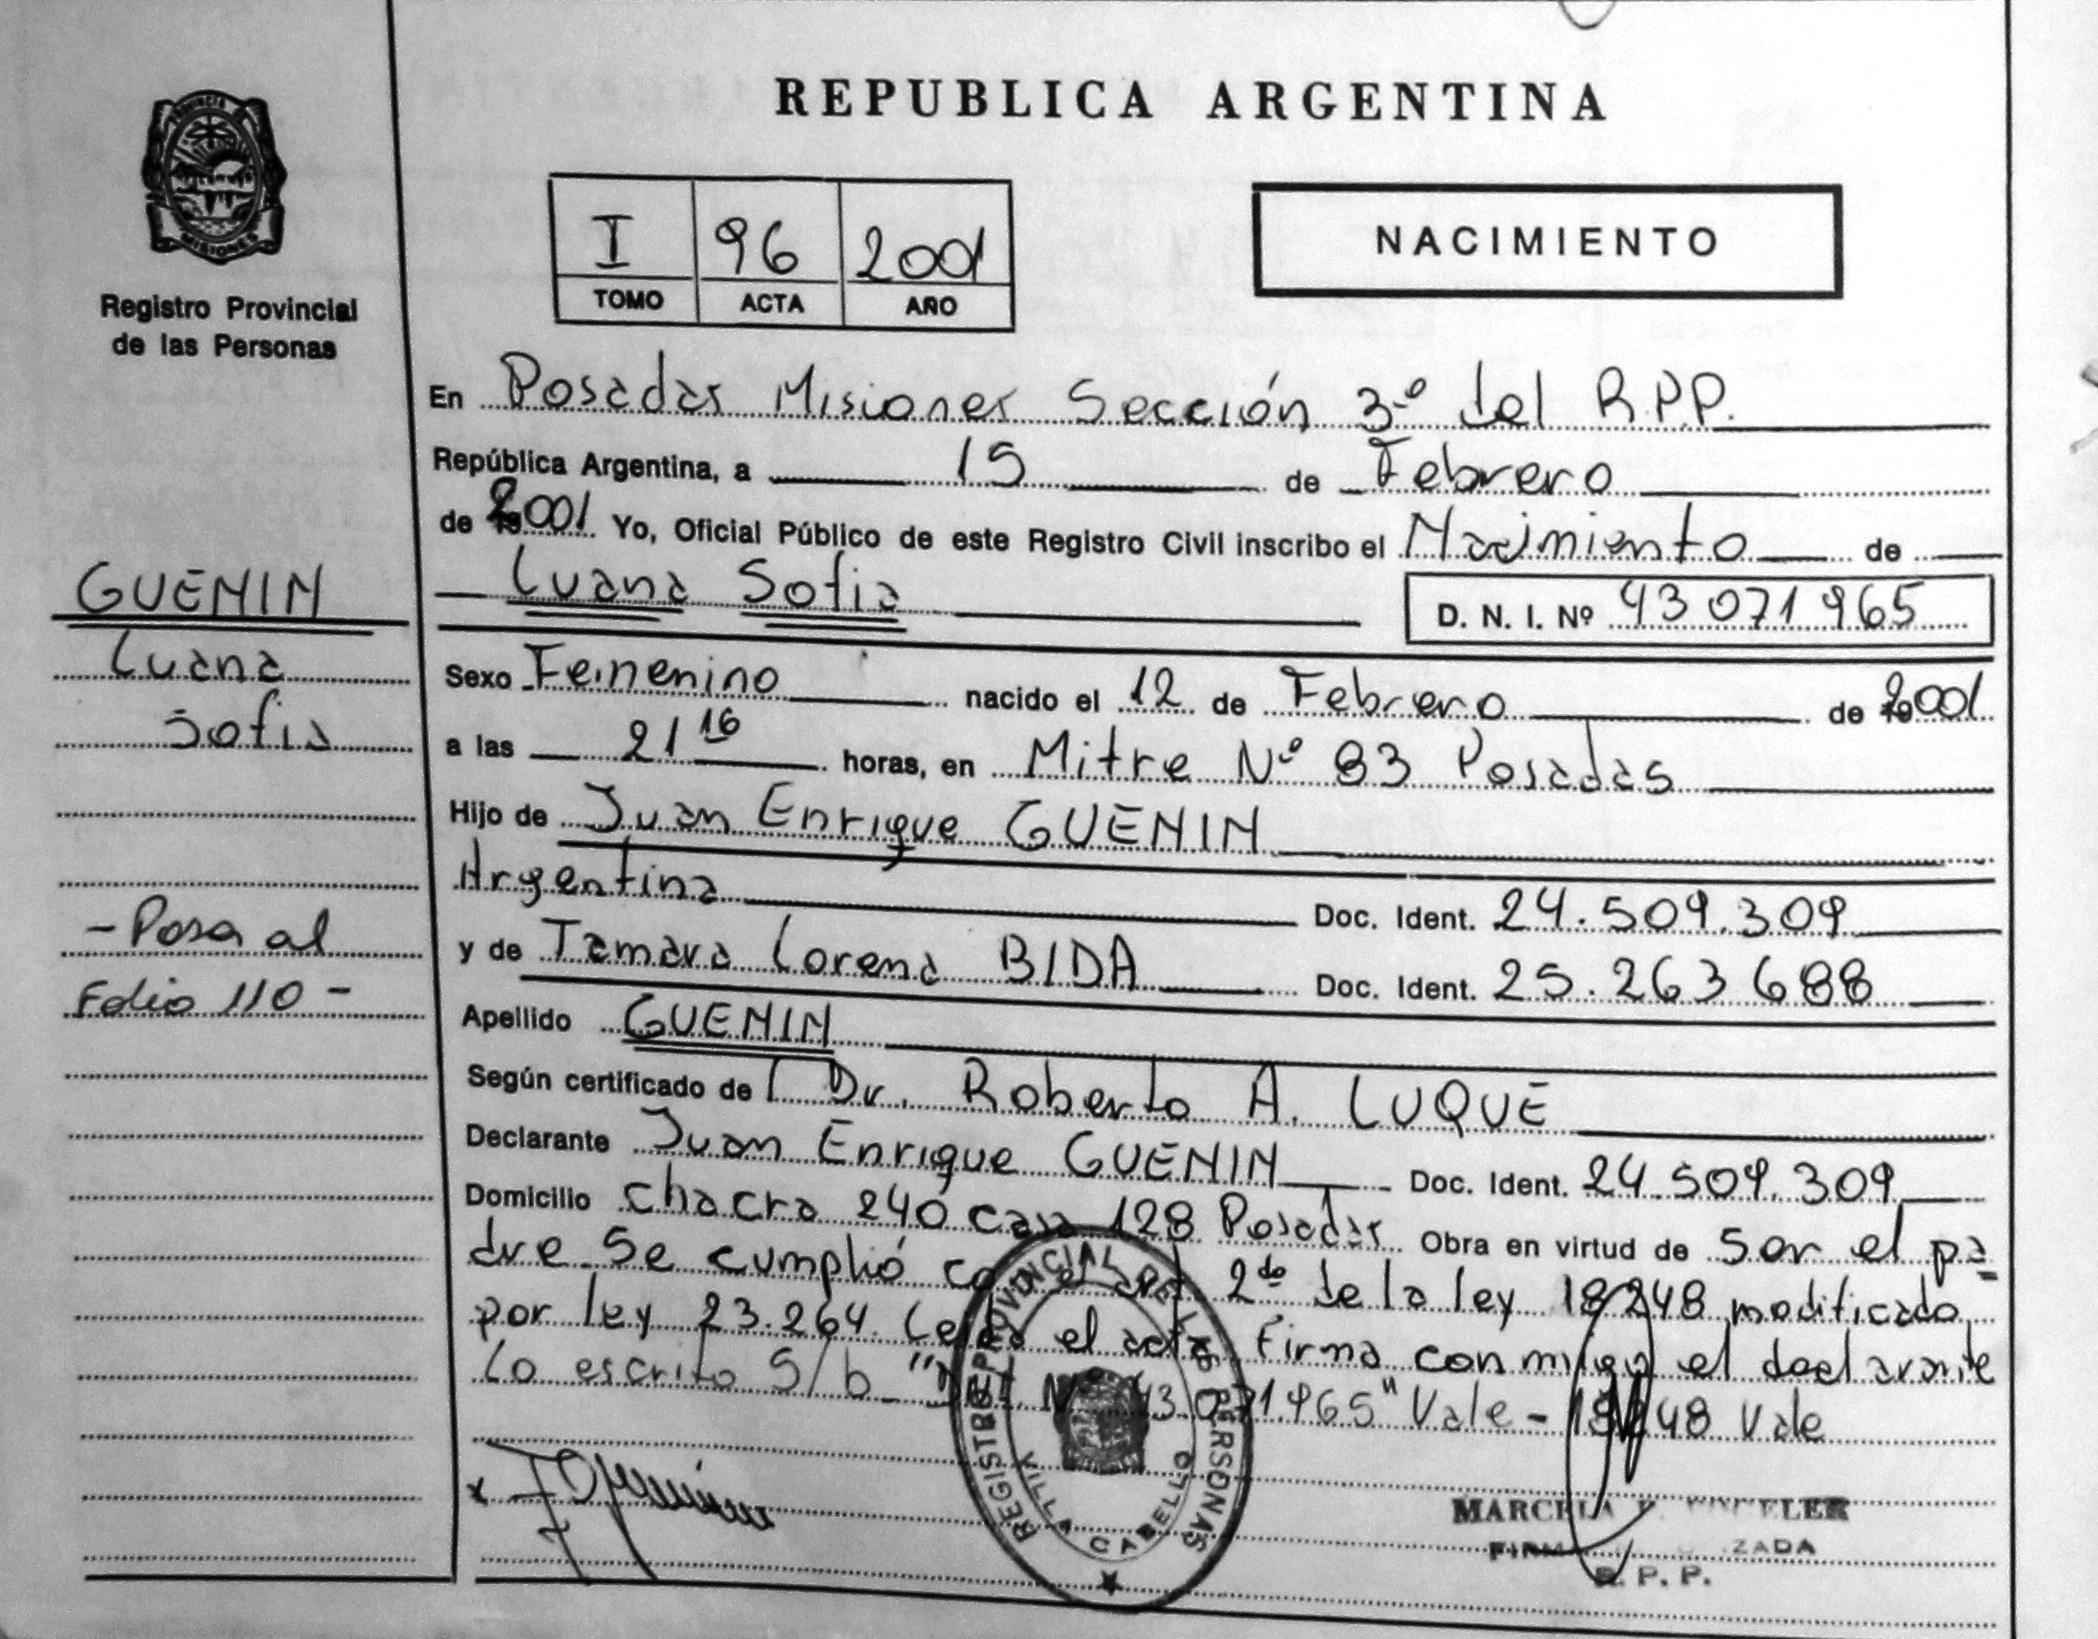 PROVINCIA
MISIONES
Registro Provincial
de las Personas
REPUBLICA ARGENTINA
I 96 2001
TOMO ACTA AÑO
NACIMIENTO
En Posadas Misiones Sección 3º del R.P.P.
República Argentina, a 15 de Febrero
de 2001 Yo, Oficial Público de este Registro Civil inscribo el Nacimiento de
Luana Sofia D. N. I. Nº 43 071 965
GUENIN
Luana
Sofia
Sexo Femenino nacido el 12 de Febrero de 2001
a las 21 16 horas, en Mitre Nº 83 Posadas
Hijo de Juan Enrique GUENIN
Argentina Doc. Ident. 24.509.309
y de Tamara Lorena BIDA Doc. Ident. 25.263 688
- Pasa al
Folio 110 -
Apellido GUENIN
Según certificado de Dr. Roberto A. LUQUE
Declarante Juan Enrique GUENIN Doc. Ident. 24.509.309
Domicilio chacra 240 casa 128 Posadas Obra en virtud de Ser el pa
dre Se cumplió con el art 2do de la ley 18248 modificado
por ley 23.264 Leida el acta Firma conmigo el declarante
Lo escrito S/b "D.N.I. Nº 43.071.965" Vale - 18248 Vale
REGISTRO PROVINCIAL DE LAS PERSONAS
VILLA CABELLO
MARCELA
R. P. P.